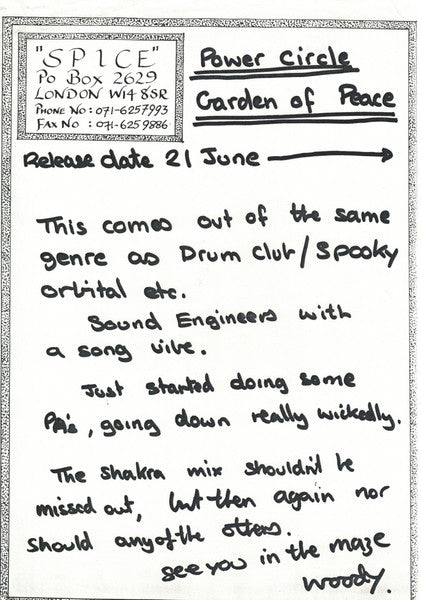 "SPICE"
Po Box 2629
LONDON W14 8SR
PHONE NO : 071-6257993
FAX NO : 071-6259886
Power Circle
Garden of Peace
Release date 21 June
This comes out of the same
genre as Drum Club/Spooky
orbital etc.
Sound Engineers with
a song vibe.
Just started doing some
PA's, going down really wickedly.
The shakra mix shouldn't be
missed out, but then again nor
should any of the others.
see you in the maze
Woody.